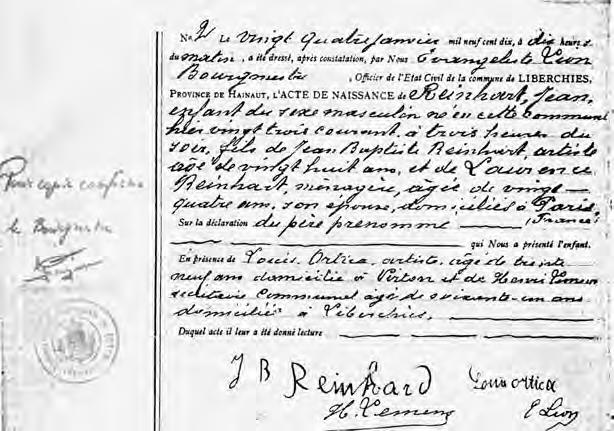 No 2 Le vingt quatre janvier mil neuf cent dix, à dix heures
du matin, a été dressé, après constatation, par Nous Évangeliste Lion
Bourgmestre, Officier de l'Etat Civil de la commune de LIBERCHIES,
PROVINCE DE HAINAUT, L'ACTE DE NAISSANCE DE Reinhart, Jean,
enfant du sexe masculin né en cette commune
hier vingt trois courant à trois heures du
soir, fils de Jean Baptiste Reinhart, artiste
âgé de vingt huit ans, et de Laurence
Reinhart, ménagère, âgée de vingt-
quatre ans, son épouse, domiciliés à Paris
(France)
Sur la déclaration du père prénommé
qui Nous a présenté l'enfant.
En présence de Louis Ortica, artiste, âgé de trente
neuf ans domicilié à et de
secrétaire communal âgé de soixante-un ans
domicilié à Liberchies,
Duquel acte il leur a été donné lecture
Pour copie conforme
le Bourgmestre
J B Reinhard Louis ortica
H. E Lion